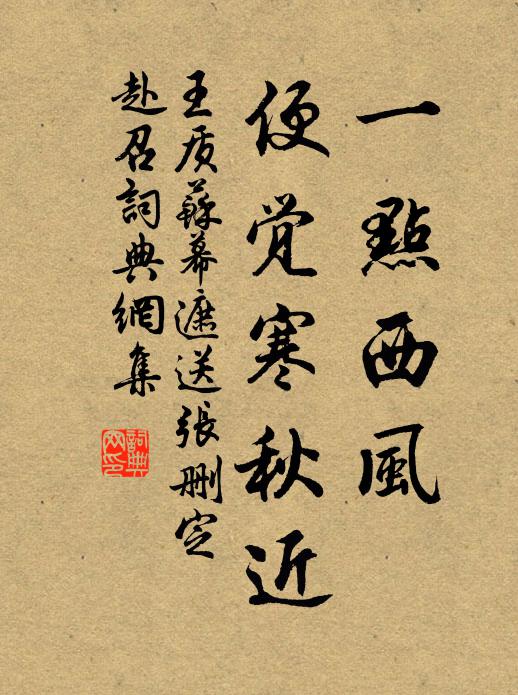 一點西風
便觉寒秋近
王质蘇幕遮送張删定
赴召詞典網集
詞典网印